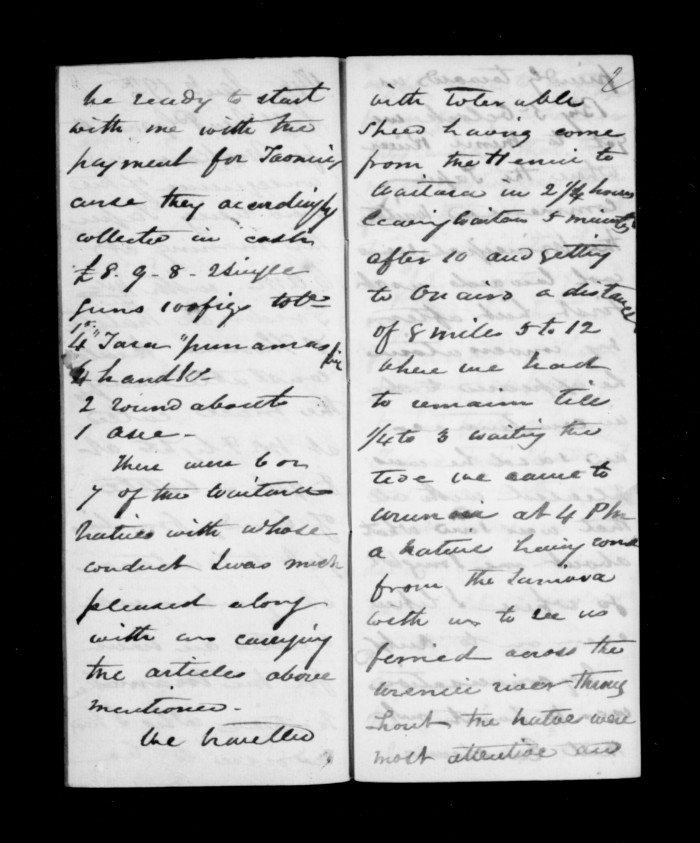 be ready to start
with me with the
payment for Taoming
arose they accordingly
collected in cash
£8 - 9 - 8 - 2 single
guns 100 figs tobº
4 "Tara" punamas
4 handkfs
2 round abouts
1 axe -
There were 6 or
7 of the Waitara
Natives with whose
conduct I was much
pleased along
with us carrying
the articles above
mentioned -
We travelled
2
with tolerable
Speed having come
from the Henui to
Waitara in 2 1/4 hours
leaving Waitara 5 minutes
after 10 and getting
to Onairo a distance
of 8 miles 5 to 12
where we had
to remain till
1/4 to 3 waiting the
tide we came to
at 4 PM
a Native having come
from the
with us to see us
ferried across the
river through
=hout the natives were
most attentive and